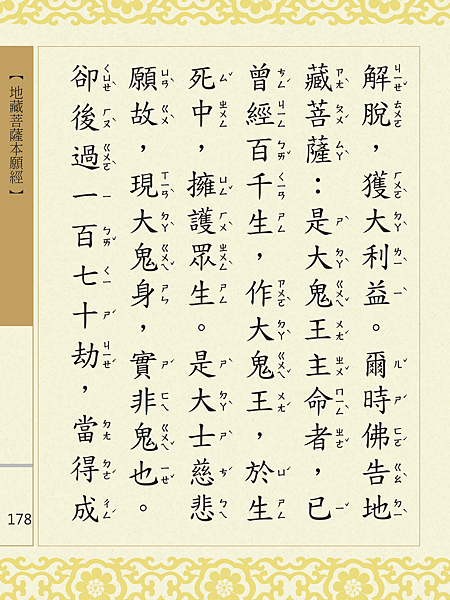 解脫，獲大利益。爾時佛告地
藏菩薩：是大鬼王主命者，已
曾經百千生，作大鬼王，於生
死中，擁護眾生。是大士慈悲
願故，現大鬼身，實非鬼也。
卻後過一百七十劫，當得成
【地藏菩薩本願經】
178